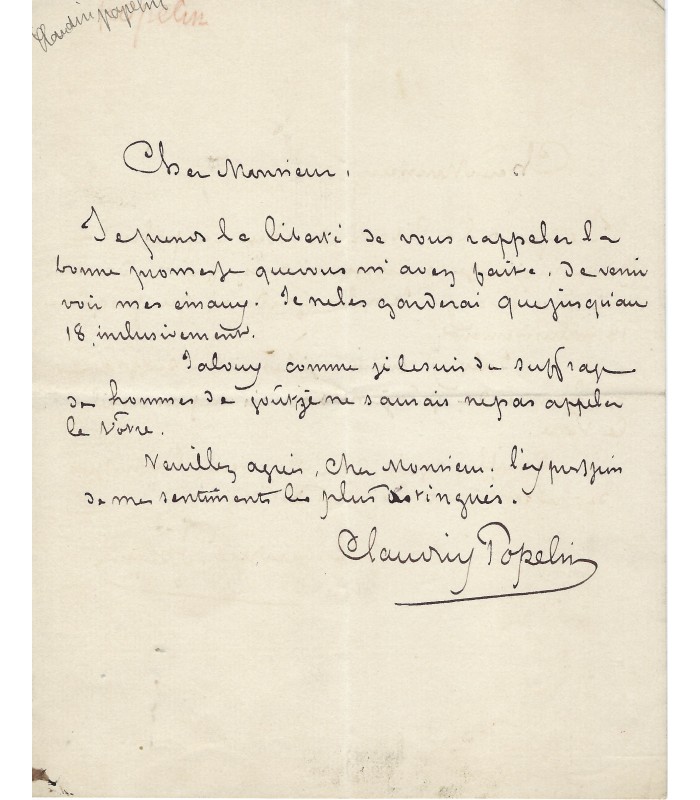 Claudin popelin
Popelin
Cher Monsieur.
Je prends la liberté de vous rappeler la
bonne promesse que vous m'avez faite. de venir
voir mes émaux. Je ne les garderai que jusqu'au
18, inclusivement.
Jaloux comme je le suis du suffrage
de hommes de goût je ne saurais ne pas appeler
le Vôtre.
Veuillez agréer, Cher Monsieur. l'expression
de mes sentiments les plus distingués.
Claudius Popelin